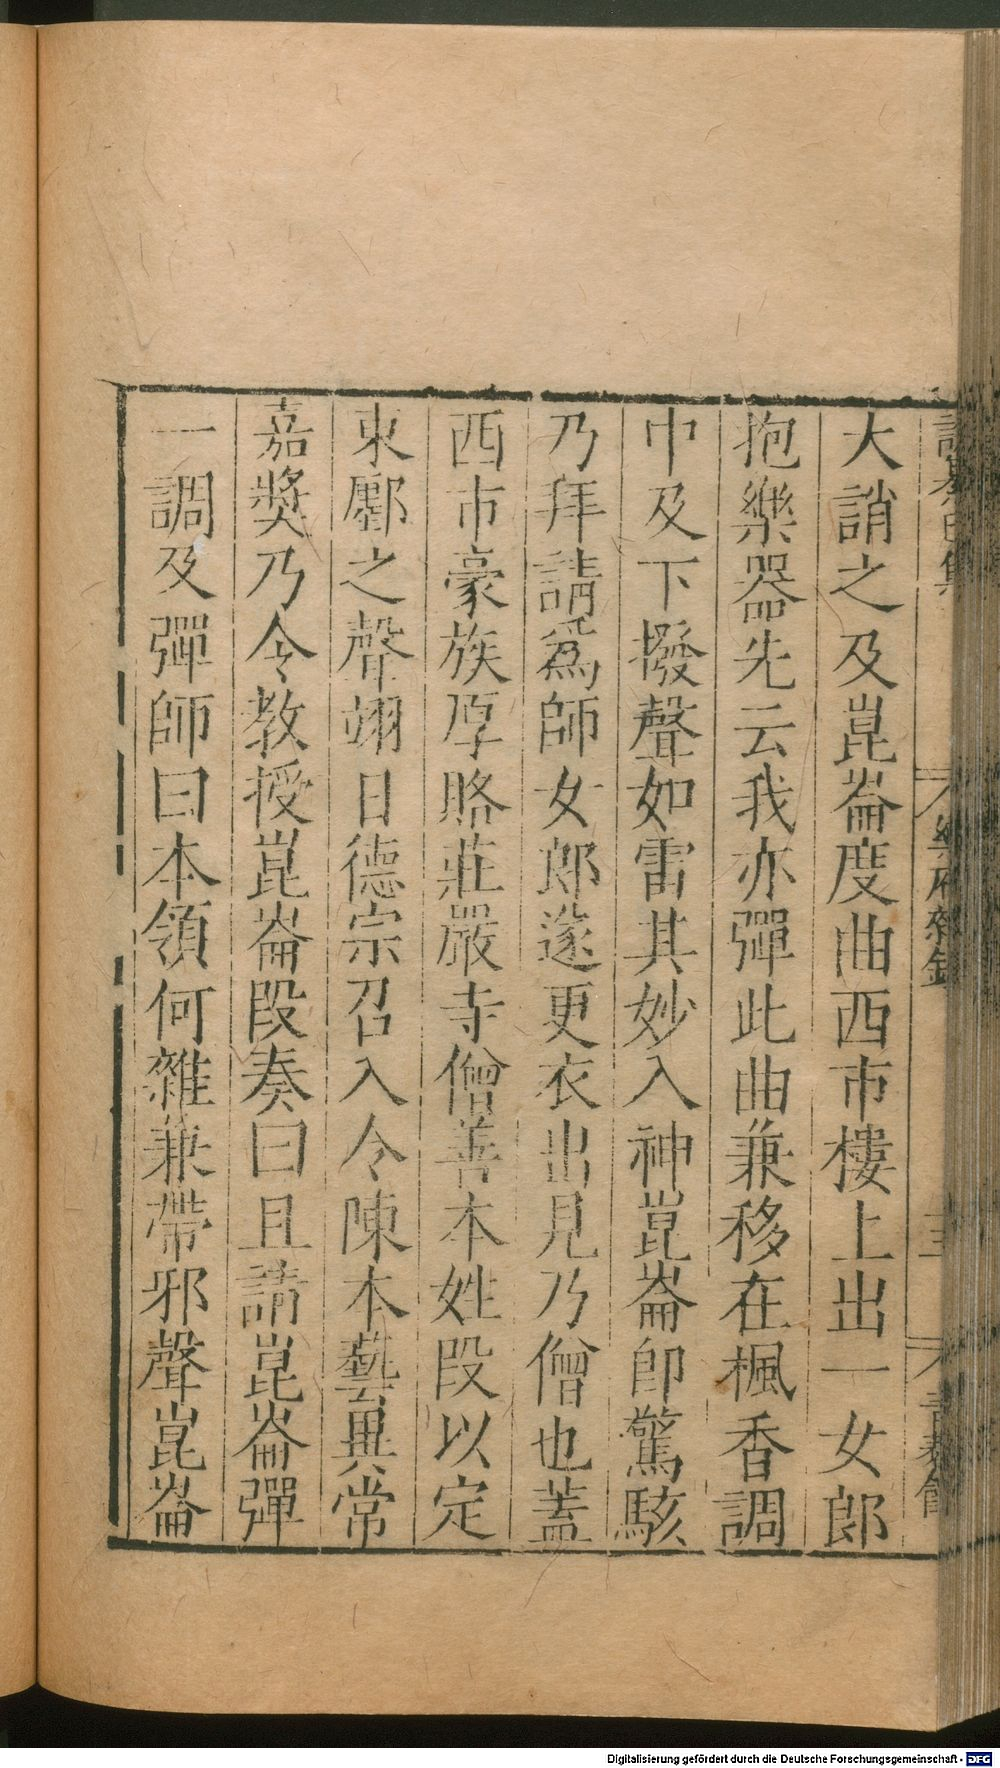 樂府雜錄
大誚之及崑崙度曲西市樓上出一女郎
抱樂器先云我亦彈此曲兼移在楓香調
中及下撥聲如雷其妙入神崑崙卽驚駭
乃拜請爲師女郎遂更衣出見乃僧也蓋
西市豪族厚賂莊嚴寺僧善本姓段以定
東鄽之聲翊日德宗召入令陳本藝異常
嘉獎乃令教授崑崙段奏曰且請崑崙彈
一調及彈師曰本領何雜兼帶邪聲崑崙
Digitalisierung gefördert durch die Deutsche Forschungsgemeinschaft - DFG